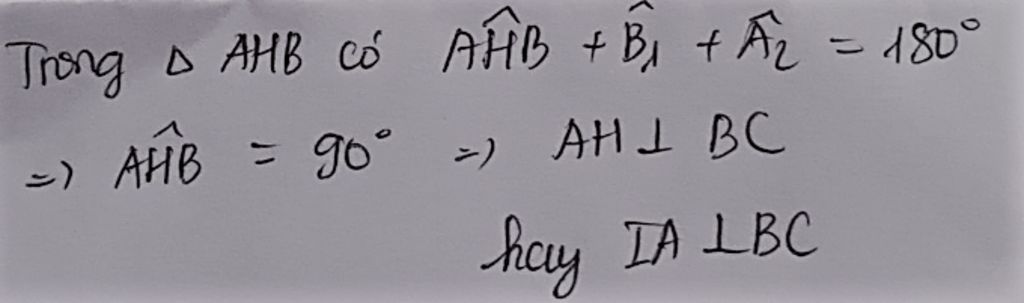 Trong Δ AHB có AĤB + B̂₁ + Â₂ = 180°
=> AĤB = 90° => AH ⊥ BC
hay IA ⊥ BC